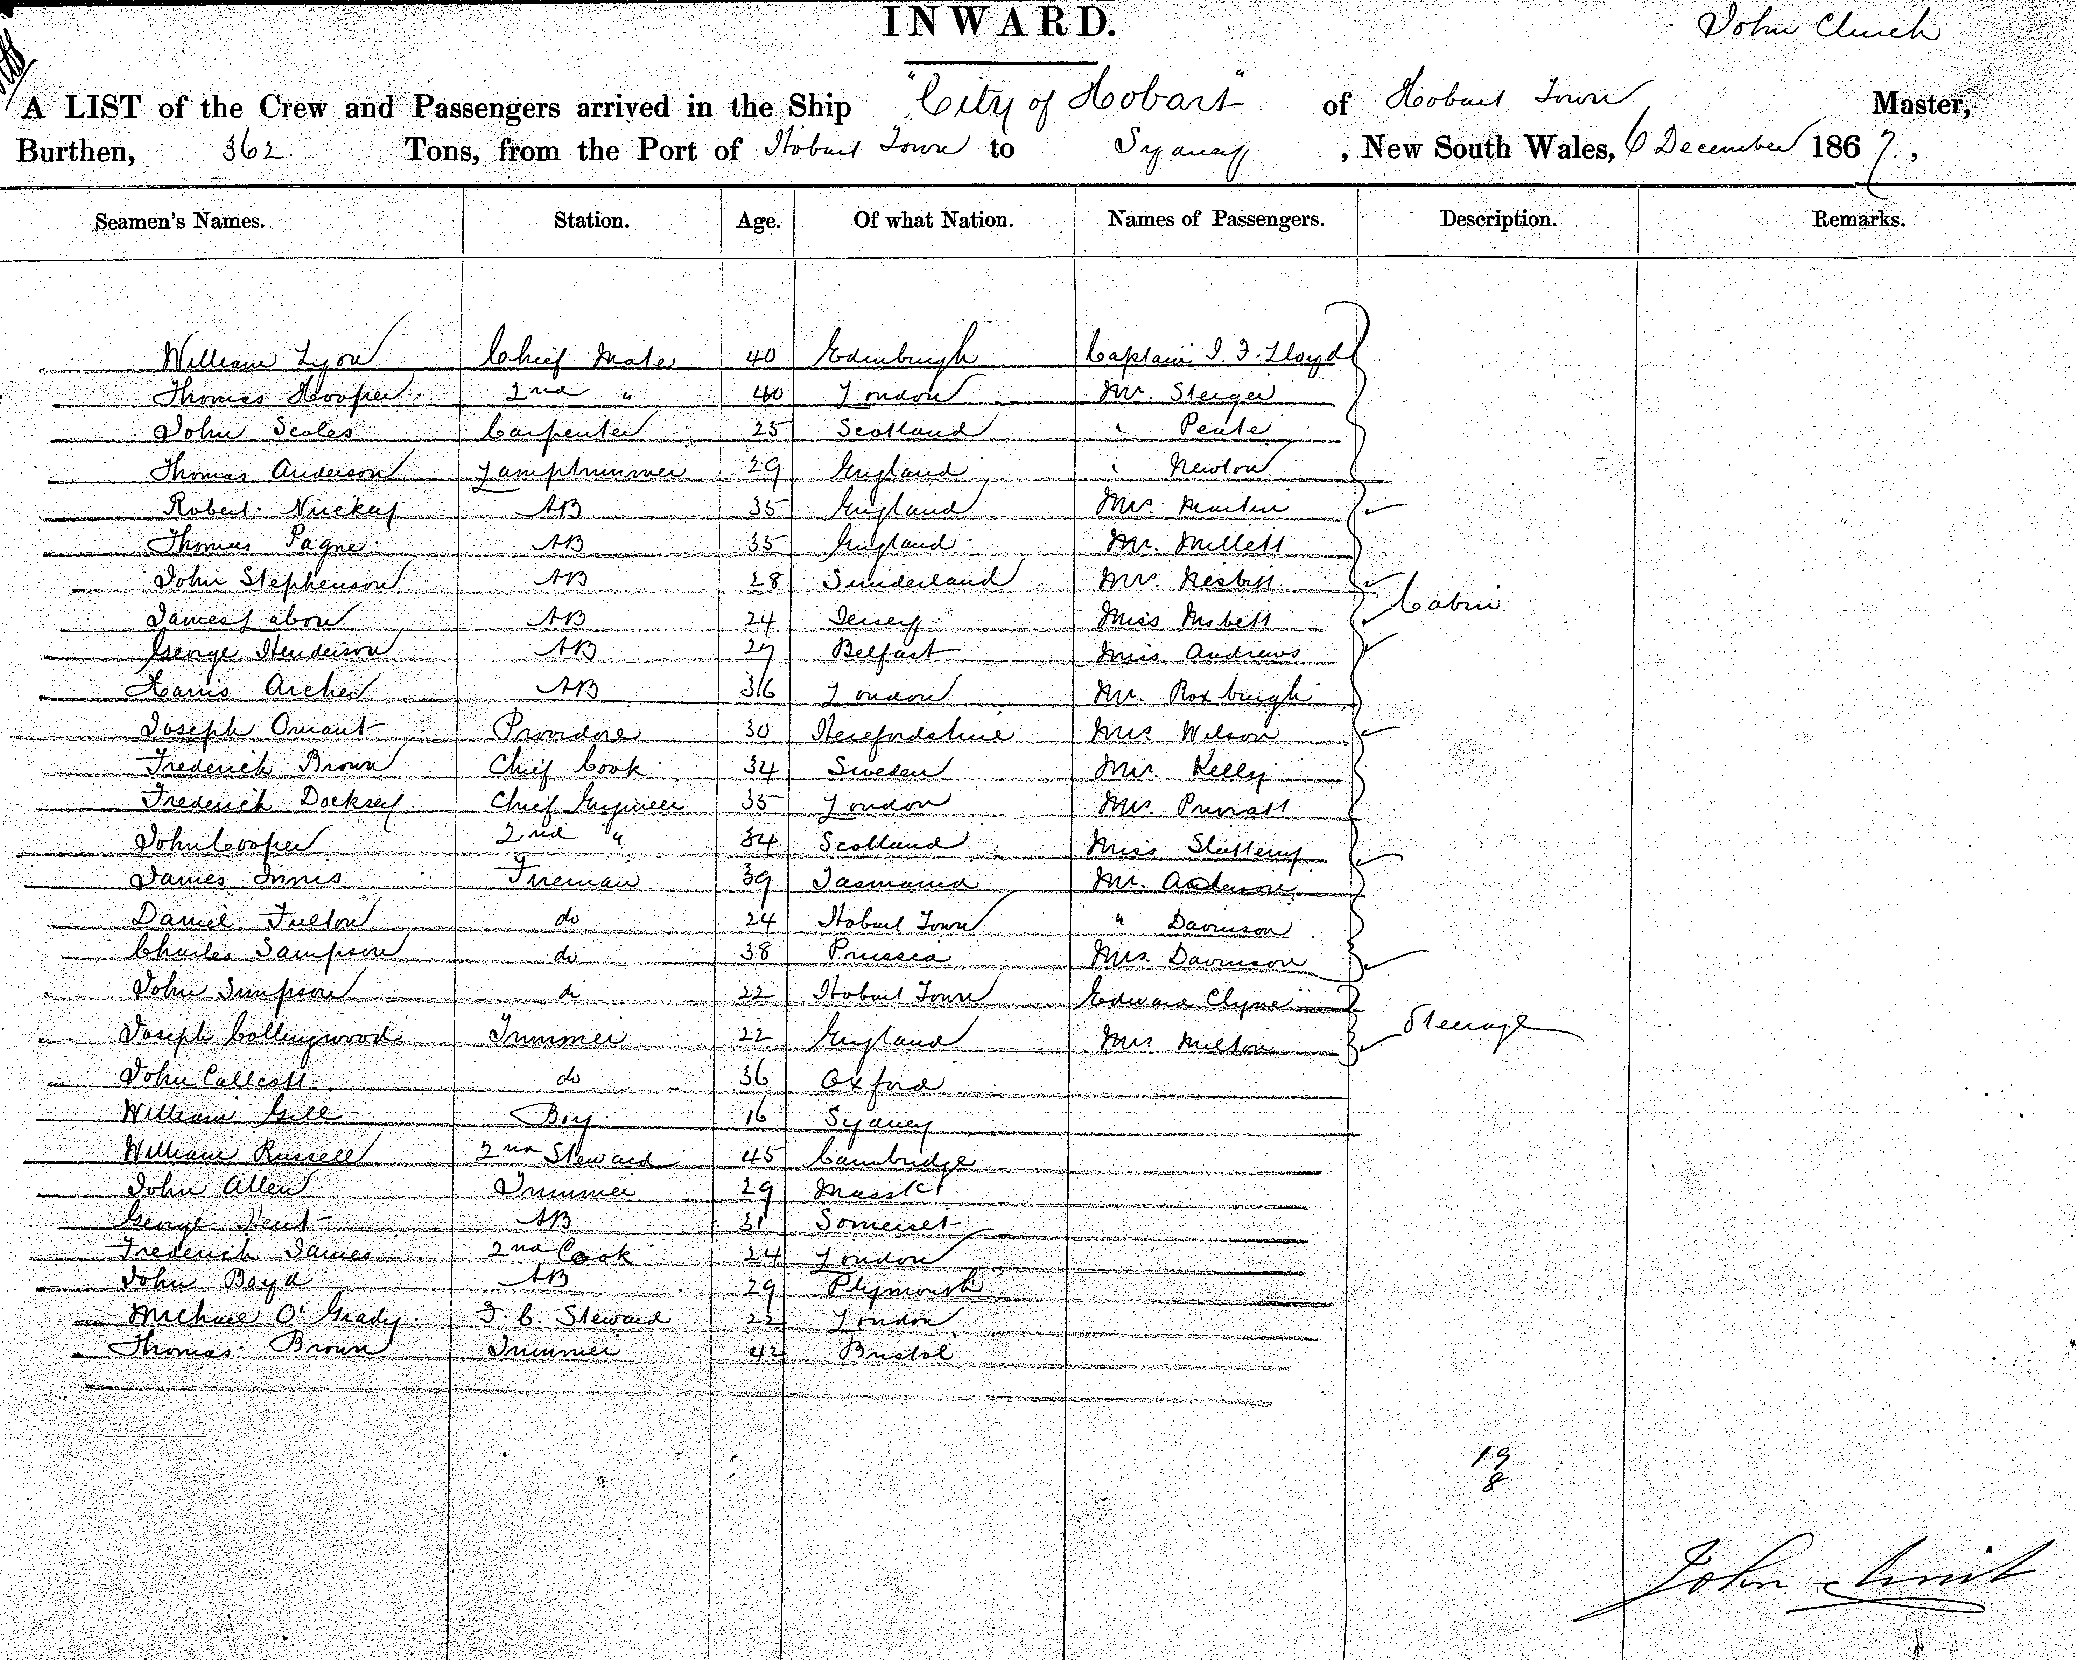 INWARD.
John Clinch
A LIST of the Crew and Passengers arrived in the Ship "City of Hobart" of Hobart Town Master,
Burthen, 362 Tons, from the Port of Hobart Town to Sydney, New South Wales, 6 December 1867.,
Seamen's Names. Station. Age. Of what Nation. Names of Passengers. Description. Remarks.
William Lyon Chief Mate 40 Edinburgh Captain J. F. Lloyd
Thomas Hooper 2nd " 40 London Mr. Steiger
John Scoles Carpenter 25 Scotland " Peate
Thomas Anderson Lamptrimmer 29 England " Newton
Robert AB 35 England Mrs. Martin
Thomas Pagne AB 35 England Mr. Millett
John Stephenson AB 28 Sunderland Mrs. Nesbitt
James AB 24 Jersey Miss Nisbett Cabin
George Henderson AB 29 Belfast Miss Andrews
Harris Archer AB 36 London Mr. Roxburgh
Joseph Providore 30 Herefordshire Mrs Wilson
Frederick Brown Chief Cook 34 Sweden Mr. Kelly
Frederick Docksey Chief Engineer 35 London Mrs.
John Cooper 2nd " 34 Scotland Miss Slattery
James Innis Fireman 39 Tasmania Mr. Anderson
Daniel Fulton do 24 Hobart Town " Davinson
Charles Sampson do 38 Prussia Mrs. Davinson
John Simpson do 22 Hobart Town Edward Clyne
Joseph Collingwood Trimmer 22 England Mrs Milton Steerage
John Callcott do 36 Oxford
William Gill Boy 16 Sydney
William Russell 2nd Steward 45 Cambridge
John Allen Trimmer 29
George Kent AB 31 Somerset
Frederick James 2nd Cook 24 London
John Boyd AB 29 Plymouth
Michael O'Grady F. C. Steward 22 London
Thomas Brown Trimmer 42 Bristol
19
8
John Clinch